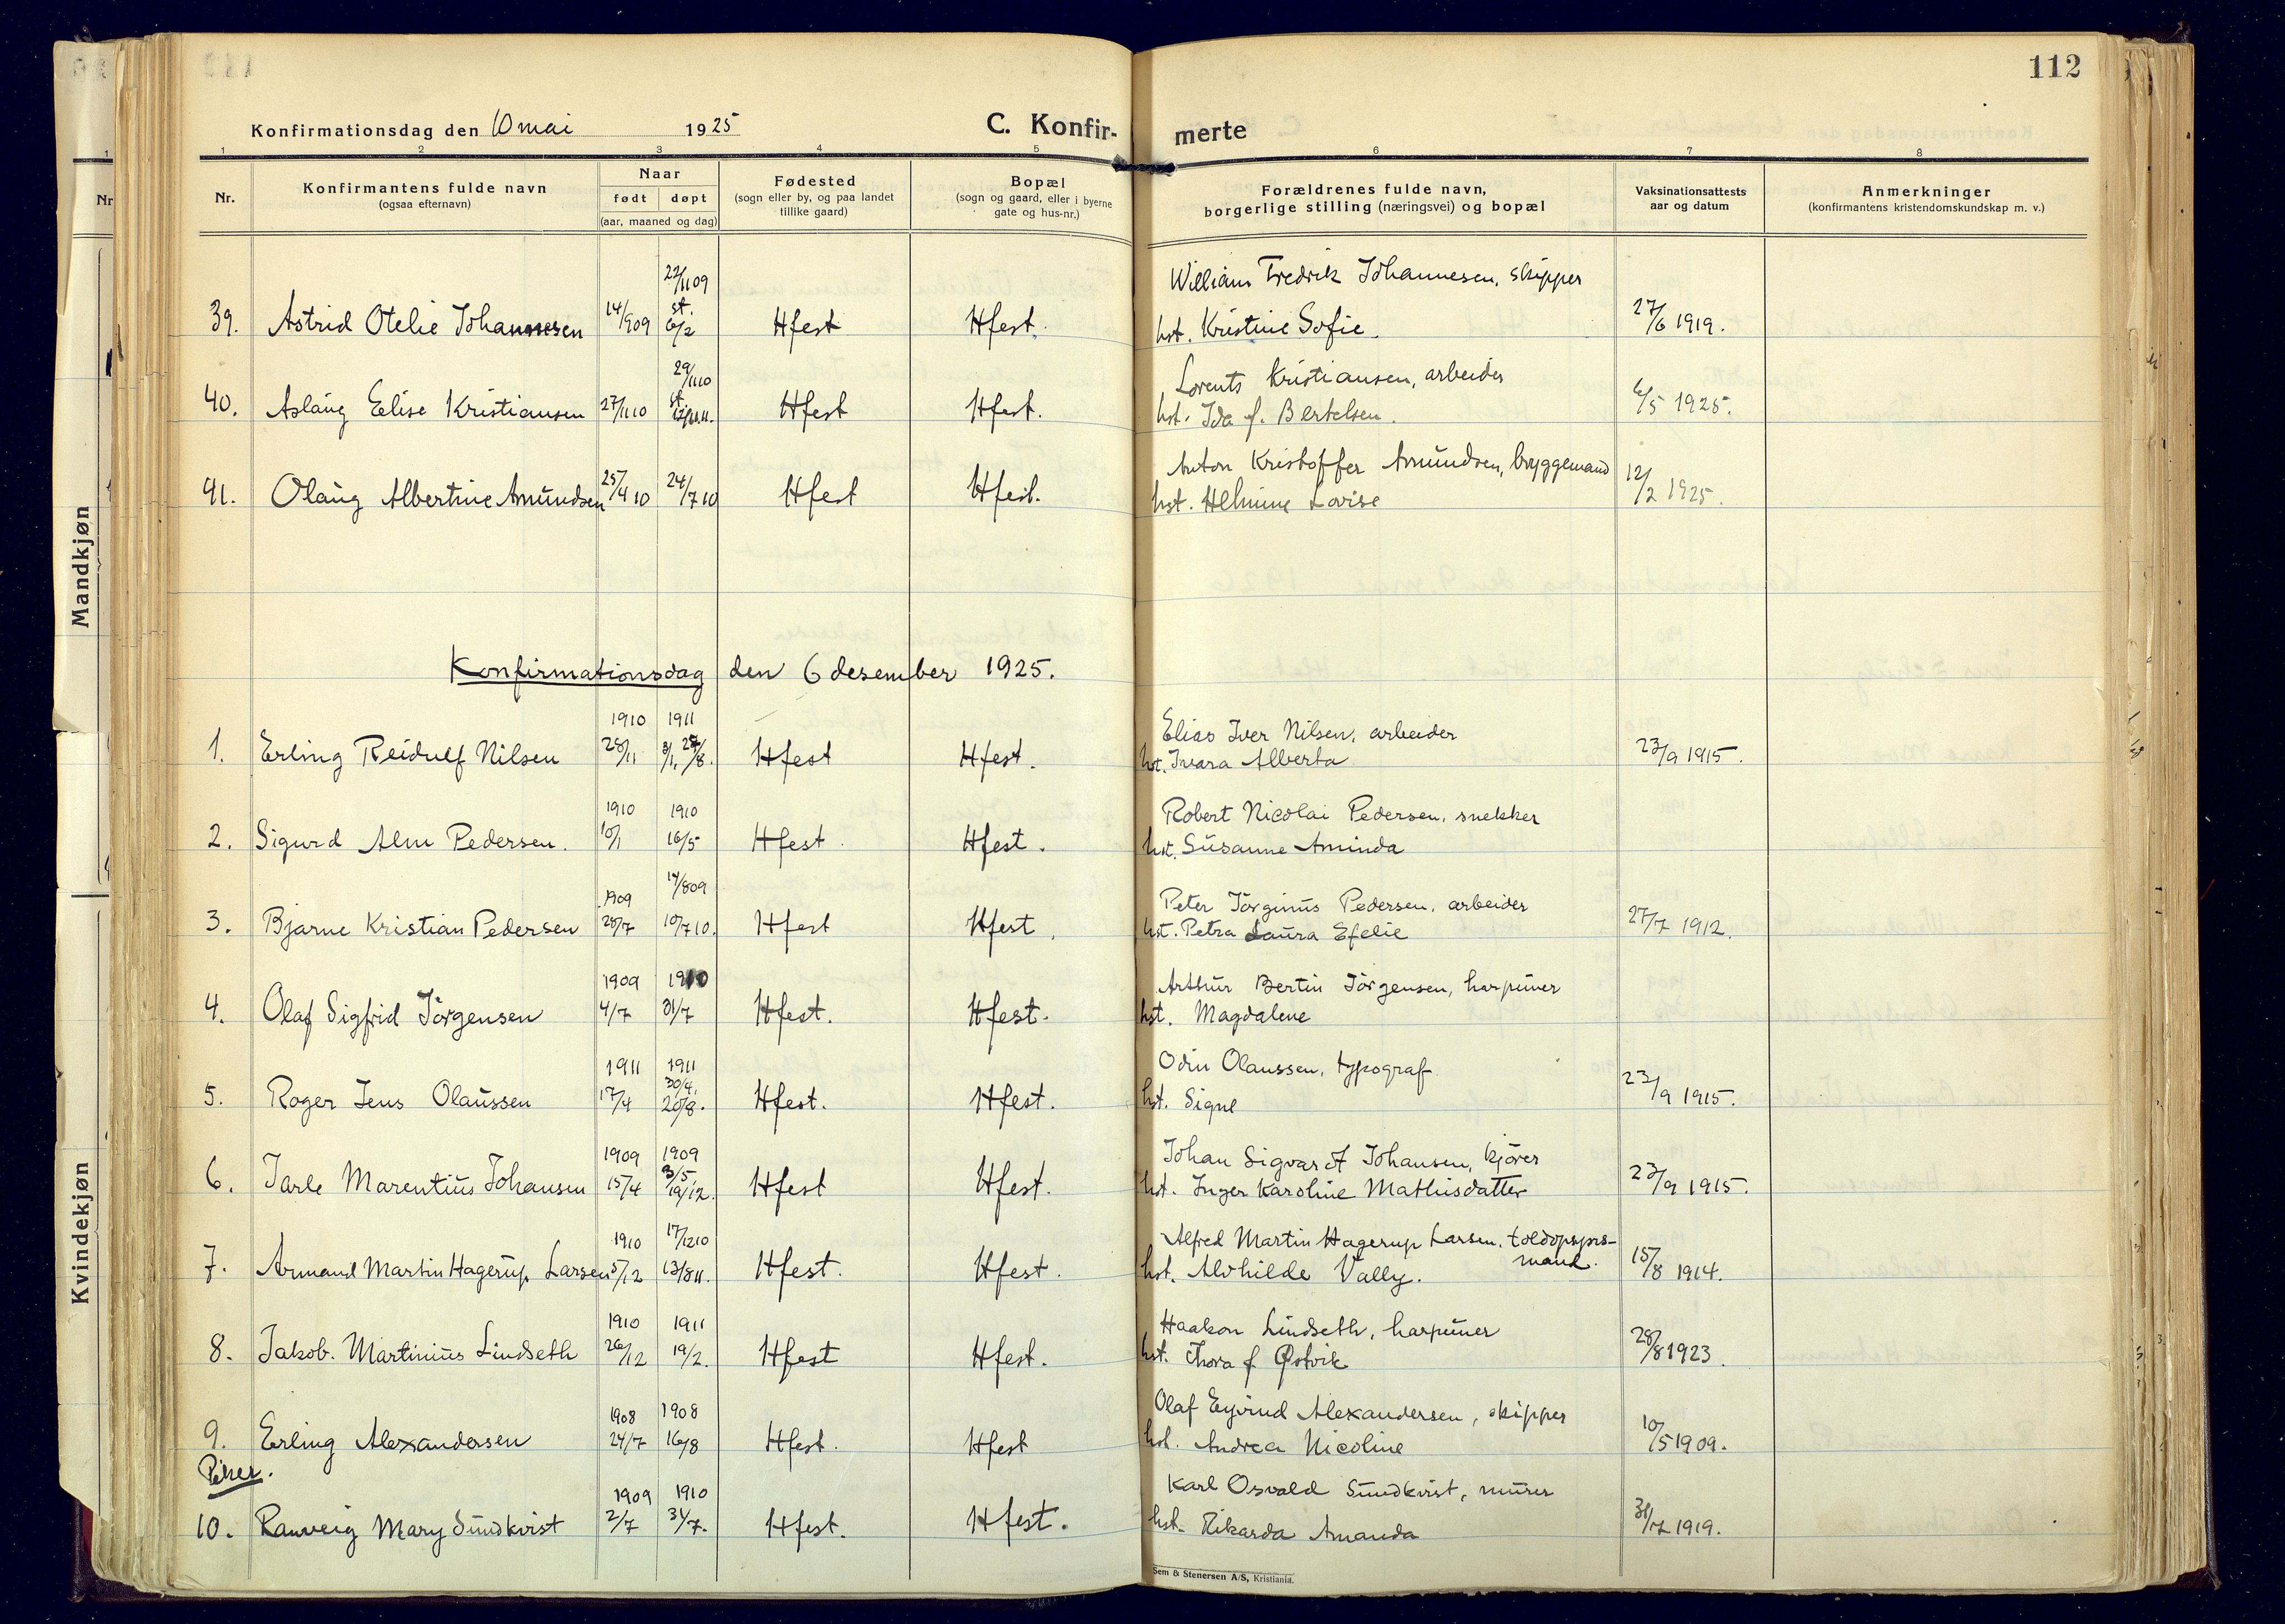 112
Konfirmationsdag den 10 mai 1925
C. Konfir- merte
1 2 3 4 5 6 7 8
Nr.
Konfirmantens fulde navn
(ogsaa efternavn)
Naar
født døpt
(aar, maaned og dag)
Fødested
(sogn eller by, og paa landet
tillike gaard)
Bopæl
(sogn og gaard, eller i byerne
gate og hus-nr.)
Forældrenes fulde navn,
borgerlige stilling (næringsvei) og bopæl
Vaksinationsattests
aar og datum
Anmerkninger
(konfirmantens kristendomskundskap m. v.)
22/11 09 William Fredrik Johannesen, skipper
39. Astrid Otelie Johannesen 14/9 09 st. 6/2 Hfest Hfest. hst. Kristine Sofie. 27/6 1919.
29/11 10 Lorents Kristiansen, arbeider
40. Aslaug Elise Kristiansen 27/11 10 st. Hfest Hfest. hst. Ida f. Bertelsen. 6/5 1925.
Anton Kristoffer Amundsen, bryggemand
41. Olaug Albertine Amundsen 25/4 10 24/7 10 Hfest Hfest. hst. Helmine Lovise 12/2 1925.
Konfirmationsdag den 6 desember 1925.
1910 1911 Elias Iver Nilsen, arbeider
1. Erling Reidulf Nilsen 28/11 8/1, 27/8. Hfest Hfest. hst. Ivara Alberta 23/9 1915.
1910 1910 Robert Nicolai Pedersen, snekker
2. Sigurd Alm Pedersen. 10/1 16/5 Hfest Hfest. hst. Susanne Aminda
1909 14/8 09 Peter Jörginus Pedersen, arbeider
3. Bjarne Kristian Pedersen 28/7 10/7 10. Hfest Hfest. hst. Petra Laura Efelie 27/7 1912.
1909 1910 Arthur Bertin Jörgensen, harpuner
4. Olaf Sigfrid Jörgensen 4/7 31/7 Hfest. Hfest. hst. Magdalene
1911 1911 Odin Olaussen, typograf
5. Roger Jens Olaussen 17/4 30/4, 20/8. Hfest. Hfest. hst. Signe 23/9 1915.
1909 1909 Johan Sigvart Johansen, kjörer
6. Jarle Marentius Johansen 15/4 3/5, 19/12. Hfest Hfest. hst. Inger Karoline Mathisdatter 23/9 1915.
1910 17/12 10 Alfred Martin Hagerup Larsen, toldopsyns-
mand.
7. Armand Martin Hagerup Larsen 5/12 13/8 11. Hfest. Hfest. hst. Alvhilde Vally. 15/8 1914.
1910 1911 Haakon Lindseth, harpuner
8. Jakob. Martinius Lindseth 26/12 19/2. Hfest Hfest. hst. Thora f Østvik 28/8 1923.
1908 1908 Olaf Eyvind Alexandersen, skipper
9. Erling Alexandersen 24/7 16/8 Hfest. Hfest hst. Andrea Nicoline 10/5 1909.
Piker.
1909 1910 Karl Osvald Sundkvist, murer
10. Ranveig Mary Sundkvist 2/7 31/7. Hfest. Hfest. hst. Rikarda Amanda 1919.
Sem & Stenersen A/S, Kristiania.
Mandkjøn
Kvindekjøn
Nr